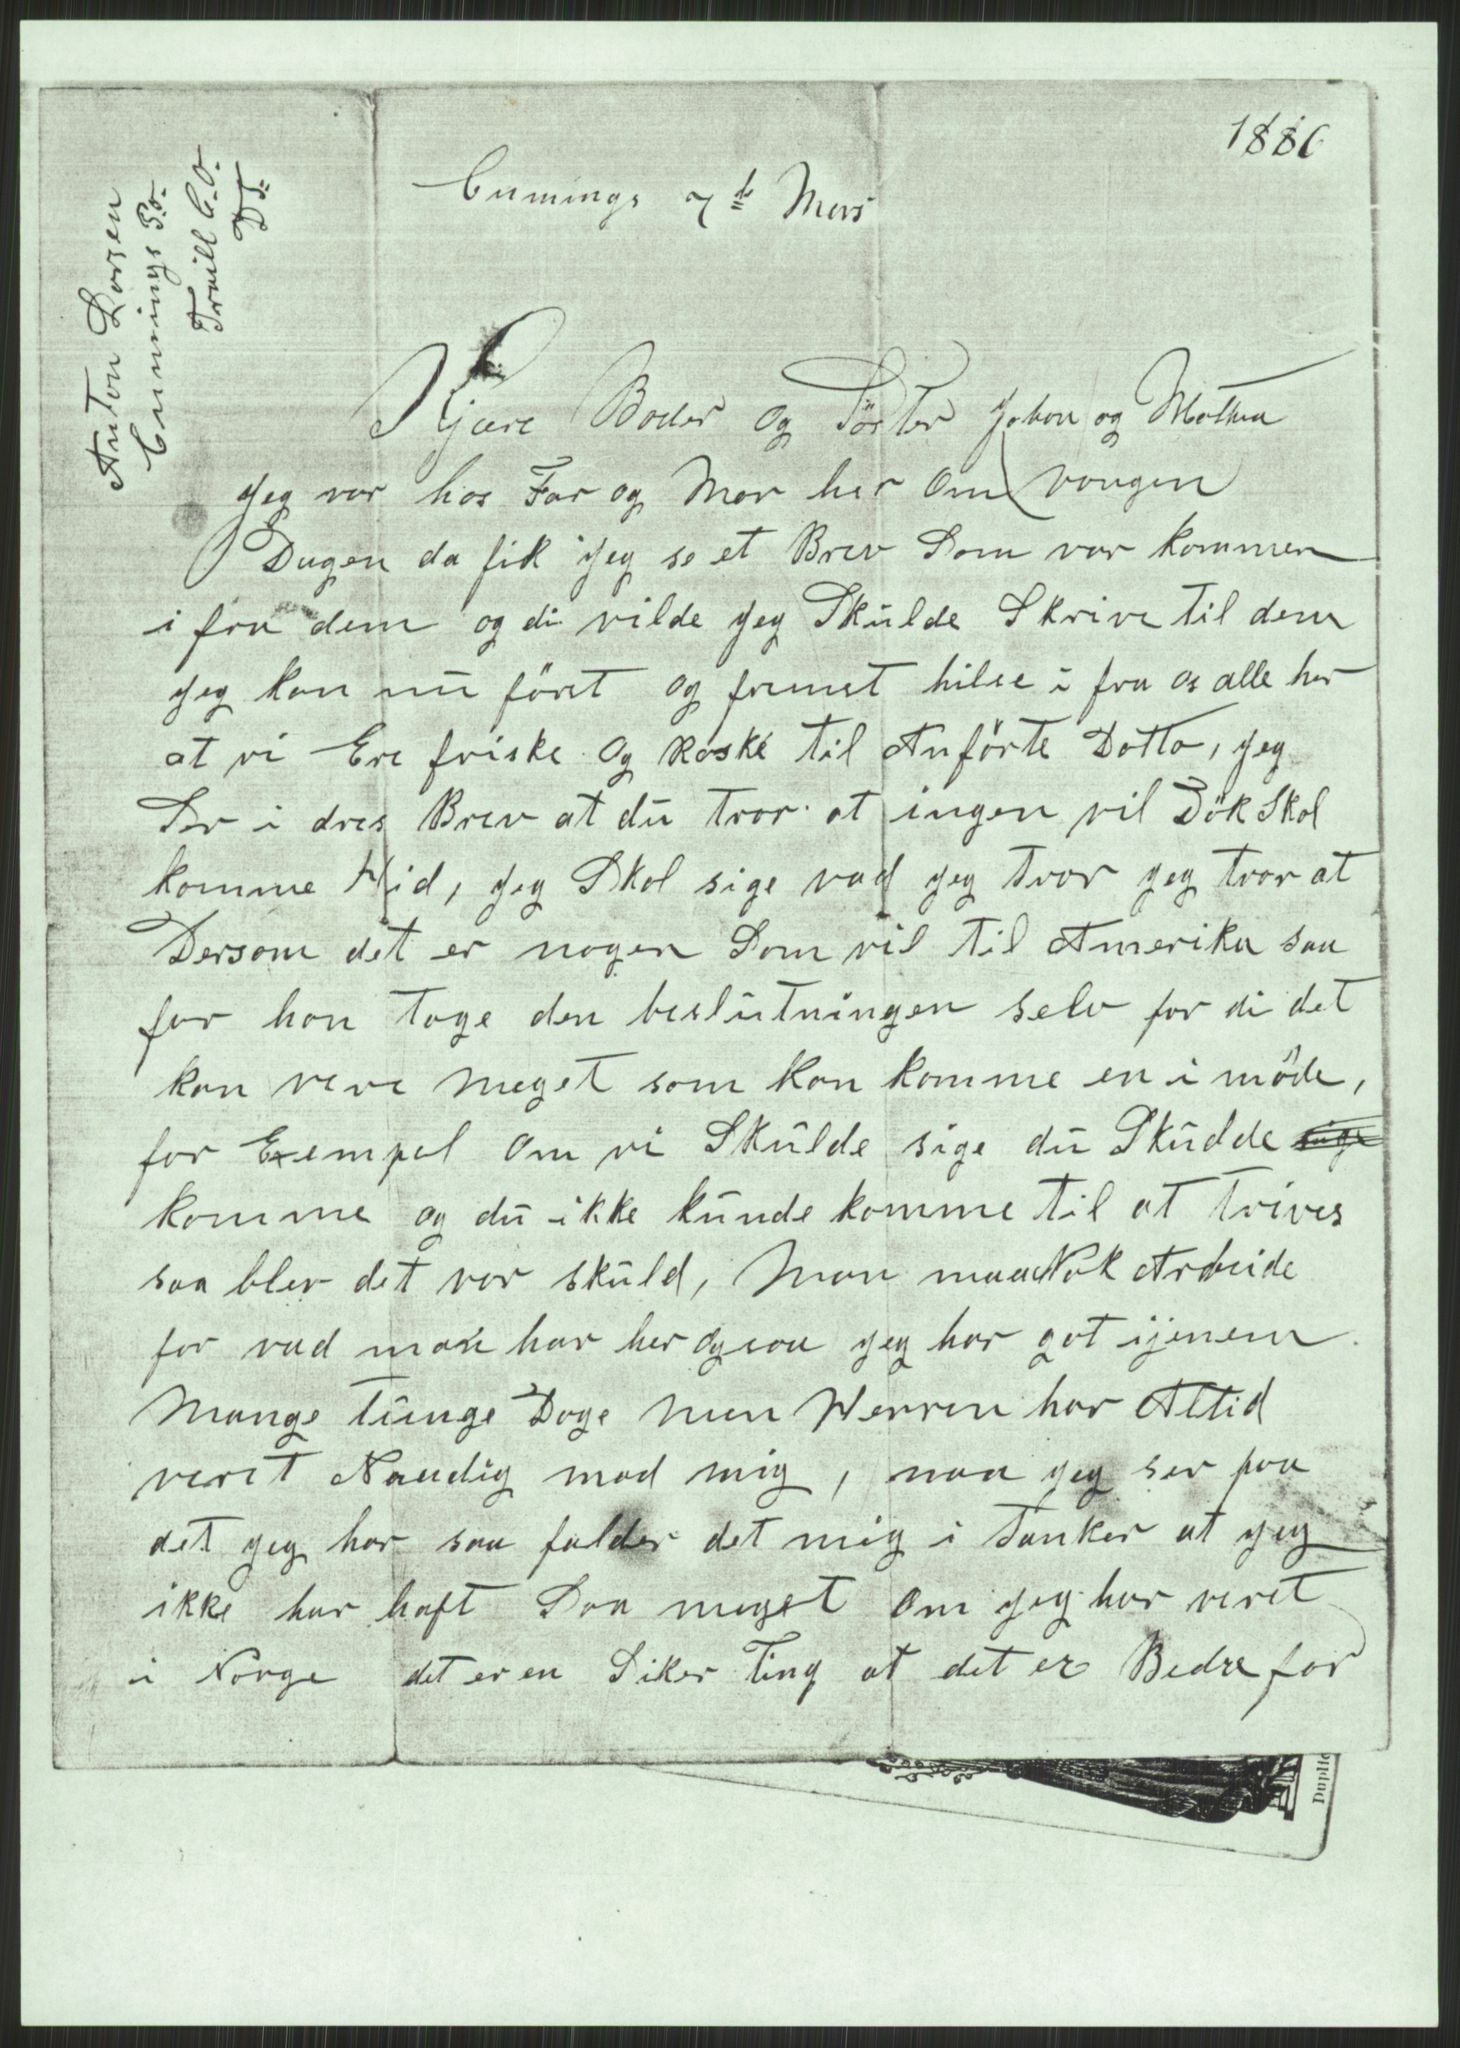 1886
Cumings 7de Mars
Anton Larsen
Cumings P.O.
Traill C.O.
D.T.
Kjære Boder og Söster Johan og Mathea
Jeg var hos Far og Mor her Om
Dagen da fik jeg se et Brev Som var kommen
i fra dem og di vilde jeg Skulde Skrive til dem
jeg kan nu först og fremst hilse i fra os alle her
at vi Ere friske og Raske til Anförte Datto, jeg
Ser i dres Brev at du tror at ingen vil Dök Skal
komme Hid, jeg Skal sige vad jeg tror jeg tror at
Dersom det er nogen Som vil til Amerika saa
far han tage den beslutningen selv for di det
kan vere meget som kan komme en i möde,
for Exempel Om vi Skulde sige du Skudde sige
komme og du ikke kunde komme til at trives
saa blev det vor skuld, Man maa Nok Arbeide
for vad man har her Ogsaa jeg har gat ijenem
Mange tunge Dage Men Herren har Altid
veret Naadig mod mig, naa jeg ser paa
det jeg har saa falder det mig i tanker at jeg
ikke har haft Saa meget Om jeg har veret
i Norge det er en Siker Ting at det er Bedre for
Duplic